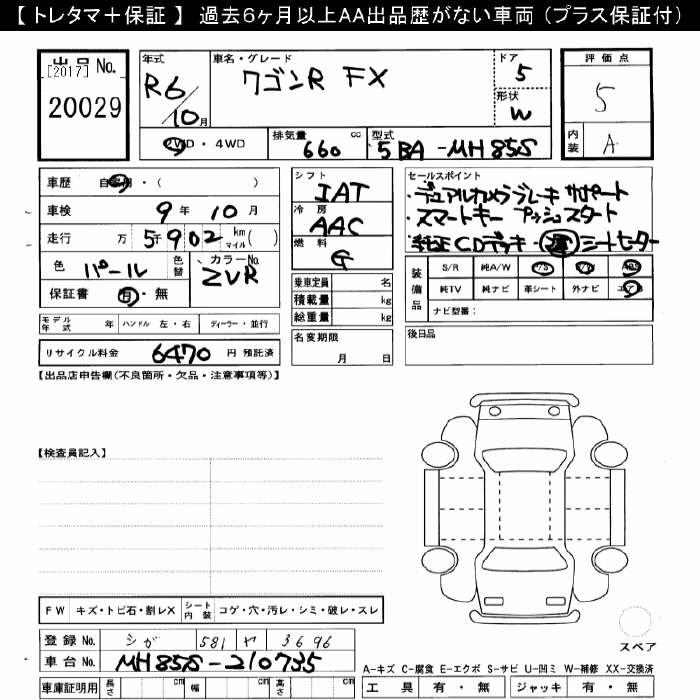 【 トレタマ＋保証 】 過去6ヶ月以上AA出品歴がない車両（プラス保証付）
出品 No.
[2017]
20029
年式
R6/10月
車名・グレード
ワゴンR FX
ドア
5
形状
W
評価点
5
内装
A
2WD・4WD
排気量
660 cc
型式
5BA-MH85S
車歴 自家用・( )
車検 9年 10月
走行 万 5千902 km マイル ( )
色 パール 色替
カラーNo.
ZVR
保証書 有・無
シフト
IAT
冷房
AAC
燃料
G
乗車定員 名
積載量 kg
総重量 kg
セールスポイント
・デュアルカメラブレーキサポート
・スマートキー プッシュスタート
・純正CDデッキ・運シートヒーター
装備品
S/R 純A/W P/S P/W ABS
純TV 純ナビ 革シート 外ナビ エアB
ナビ型番：
モデル年式 年 ハンドル 左・右 ディーラー・並行
名変期限
月 日
後日品
リサイクル料金 6470 円 預託済
【出品店申告欄(不良箇所・欠品・注意事項等)】
【検査員記入】
FW キズ・トビ石・割レX シート内装 コゲ・穴・汚レ・シミ・破レ・スレ
登録 No. シガ 581 ヤ 3696
車台 No. MH85S-210735
車庫証明用 長さ cm 幅 cm 高さ cm
スペア
A-キズ C-腐食 E-エクボ S-サビ U-凹ミ W-補修 XX-交換済
工具 有・無 ジャッキ 有・無